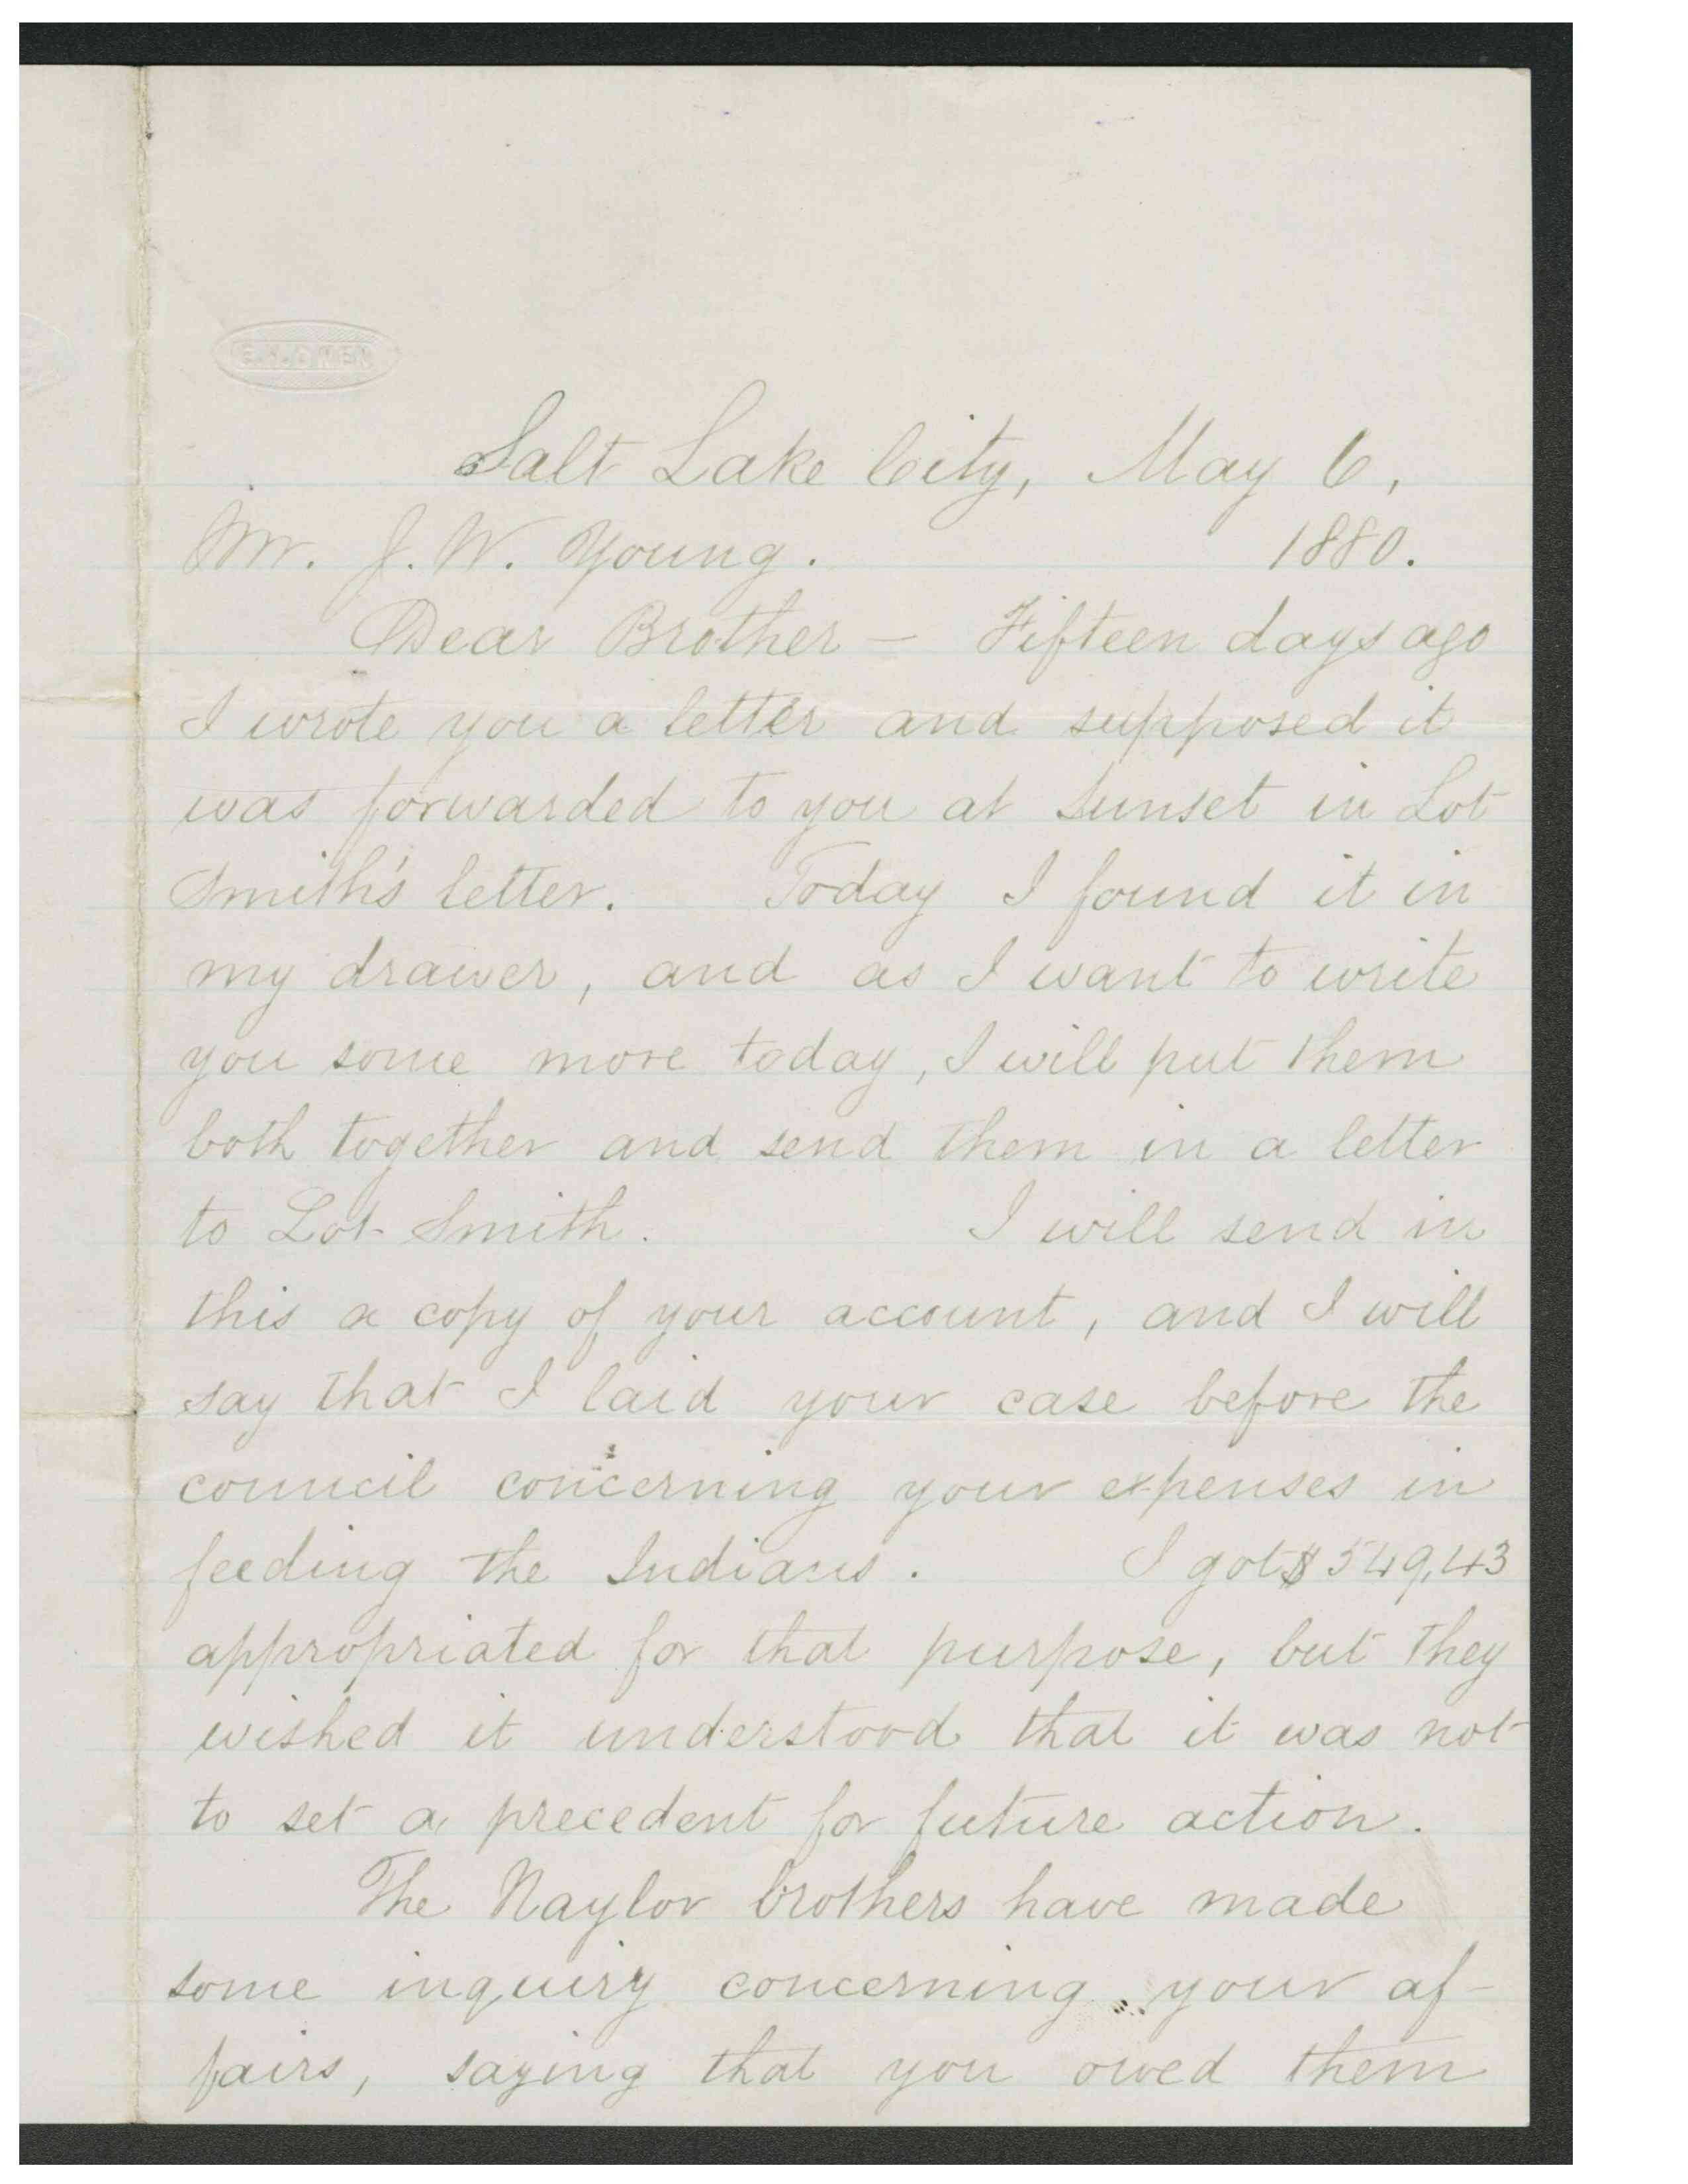 Salt Lake City, May 6,
Mr. J. W. Young. 1880.
Dear Brother — Fifteen days ago
I wrote you a letter and supposed it
was forwarded to you at Sunset in Lot
Smith's letter. Today I found it in
my drawer, and as I want to write
you some more today, I will put them
both together and send them in a letter
to Lot Smith. I will send in
this a copy of your account, and I will
say that I laid your case before the
council concerning your expenses in
feeding the Indians. I got $549,43
appropriated for that purpose, but they
wished it understood that it was not
to set a precedent for future action.
The Naylor brothers have made
some inquiry concerning your af-
fairs, saying that you owed them